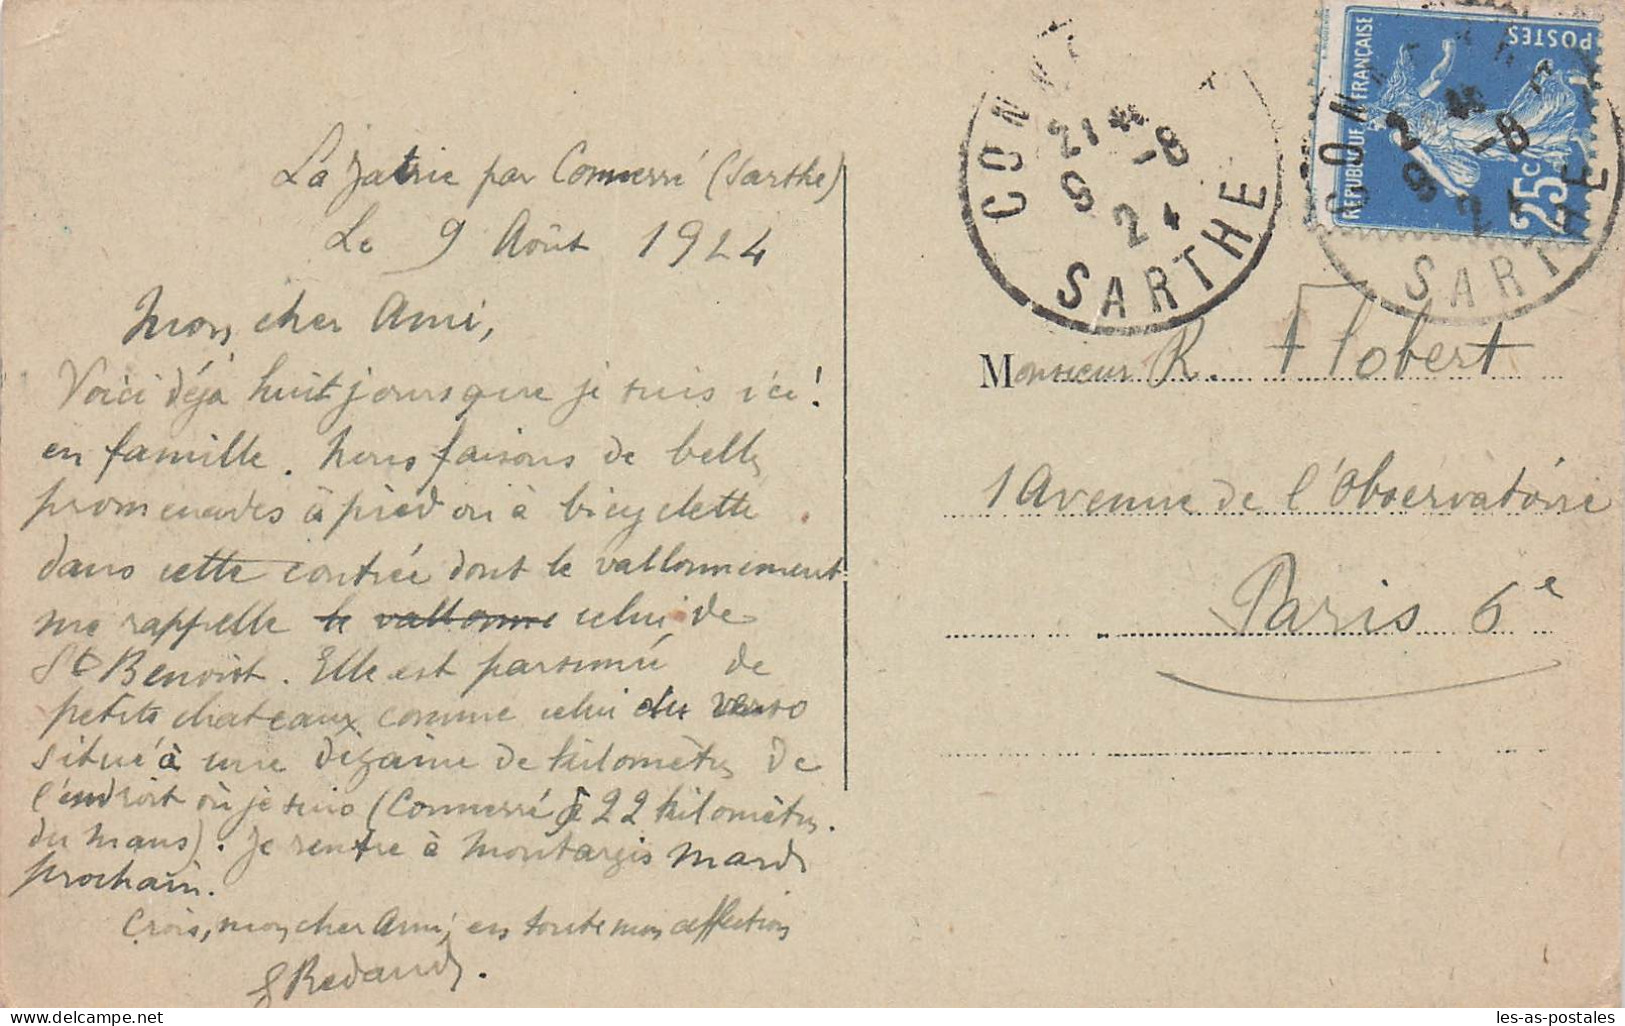 La Jatrie par Connerré (Sarthe)
Le 9 Août 1924
Mon cher Ami,
Voici déjà huit jours que je suis ici !
en famille. Nous faisons de belles
promenades à pied ou à bicyclette
dans cette contrée dont le vallonnement
me rappelle le vallonne celui de
St Benoist. Elle est parsemé de
petits chateaux comme celui du verso
situé à une dizaine de kilomètres de
l'endroit où je suis (Connerré à 22 kilomètres.
du Mans). Je rentre à Montargis mardi
prochain.
Crois, mon cher Ami, en toute mon affection
Redaud.
CONNERRÉ
21 -8
9
24
SARTHE
CONNERRÉ
-8
9
SARTHE
REPUBLIQUE FRANÇAISE
POSTES
25c
Monsieur R. Flobert
1 Avenue de l'Observatoire
Paris 6e
delcampe.net
les-as-postales